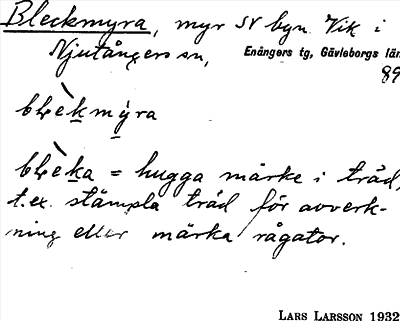 Bleckmyra, myr SV byn Vik i
Njutångers sn, Enångers tg, Gävleborgs län
89
blèkmyra
blèka = hugga märke i träd,
t.ex. stämpla träd för avverk-
ning eller märka rågator.
LARS LARSSON 1932